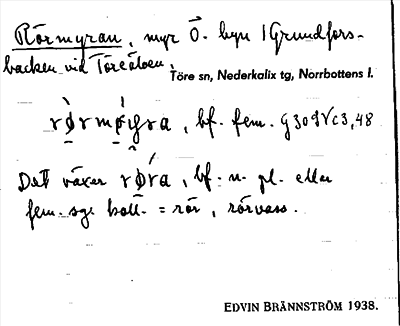 Rörmyran, myr Ö. byn i Grundfors-
backen vid Töreälven.
Töre sn, Nederkalix tg, Norrbottens l.
bf. fem. G30 g V c 3, 48
Det växer røra, bf. n. pl. eller
fem. sg. koll. = rör, rörvass.
EDVIN BRÄNNSTRÖM 1938.